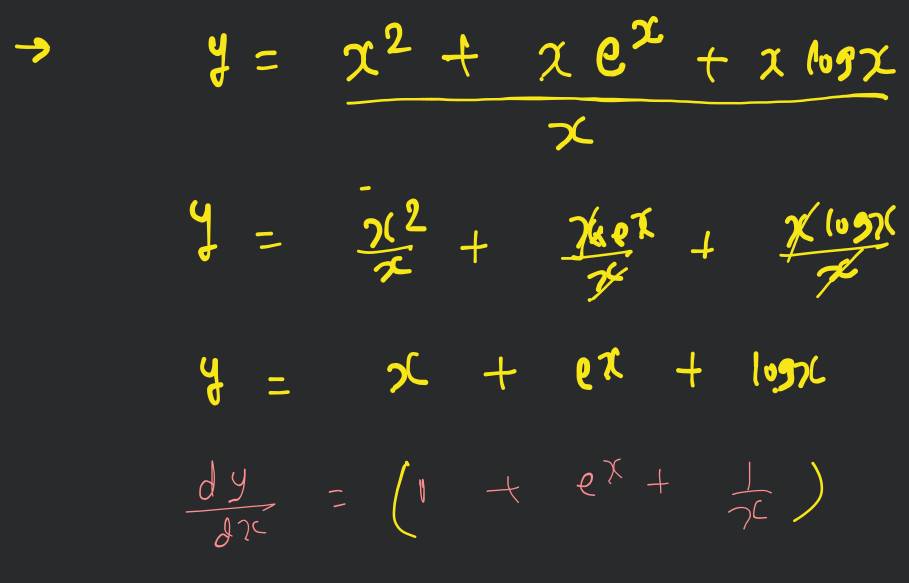 → y = x² + x eˣ + x logx / x
y = x²/x + x eˣ/x + x logx/x
y = x + eˣ + logx
dy/dx = (1 + eˣ + 1/x)